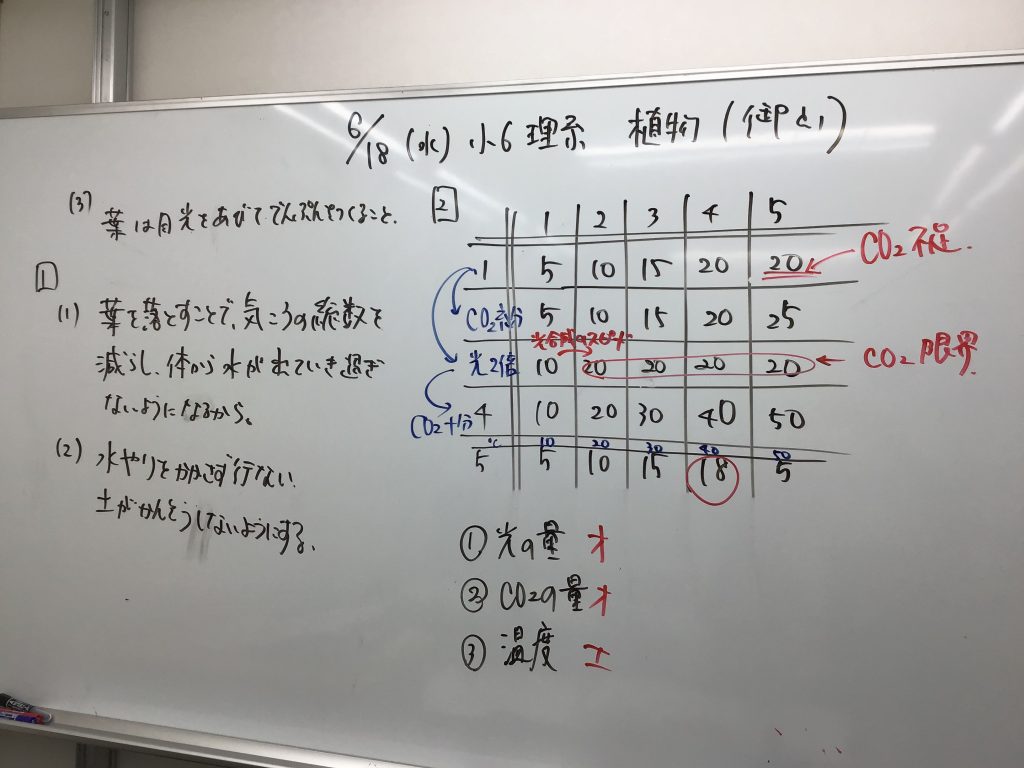 6/18 (水) 小6理系 植物
(3)
葉は日光をあびてでんぷんをつくること.
1
(1) 葉を落とすことで、気こうの総数を
減らし、体から水が出ていき過ぎ
ないようになるから。
(2) 水やりをかかさず行ない
土がかんそうしないようにする。
2
1 2 3 4 5
1 5 10 15 20 20 CO2不足.
CO2 5 10 15 20 25
光合成のスピード
光2倍 10 20 20 20 20 CO2限界
CO2十分
4 10 20 30 40 50
℃ 10 20 30 40 50
5 5 10 15 18 5
① 光の量 オ
② CO2の量 オ
③ 温度 エ